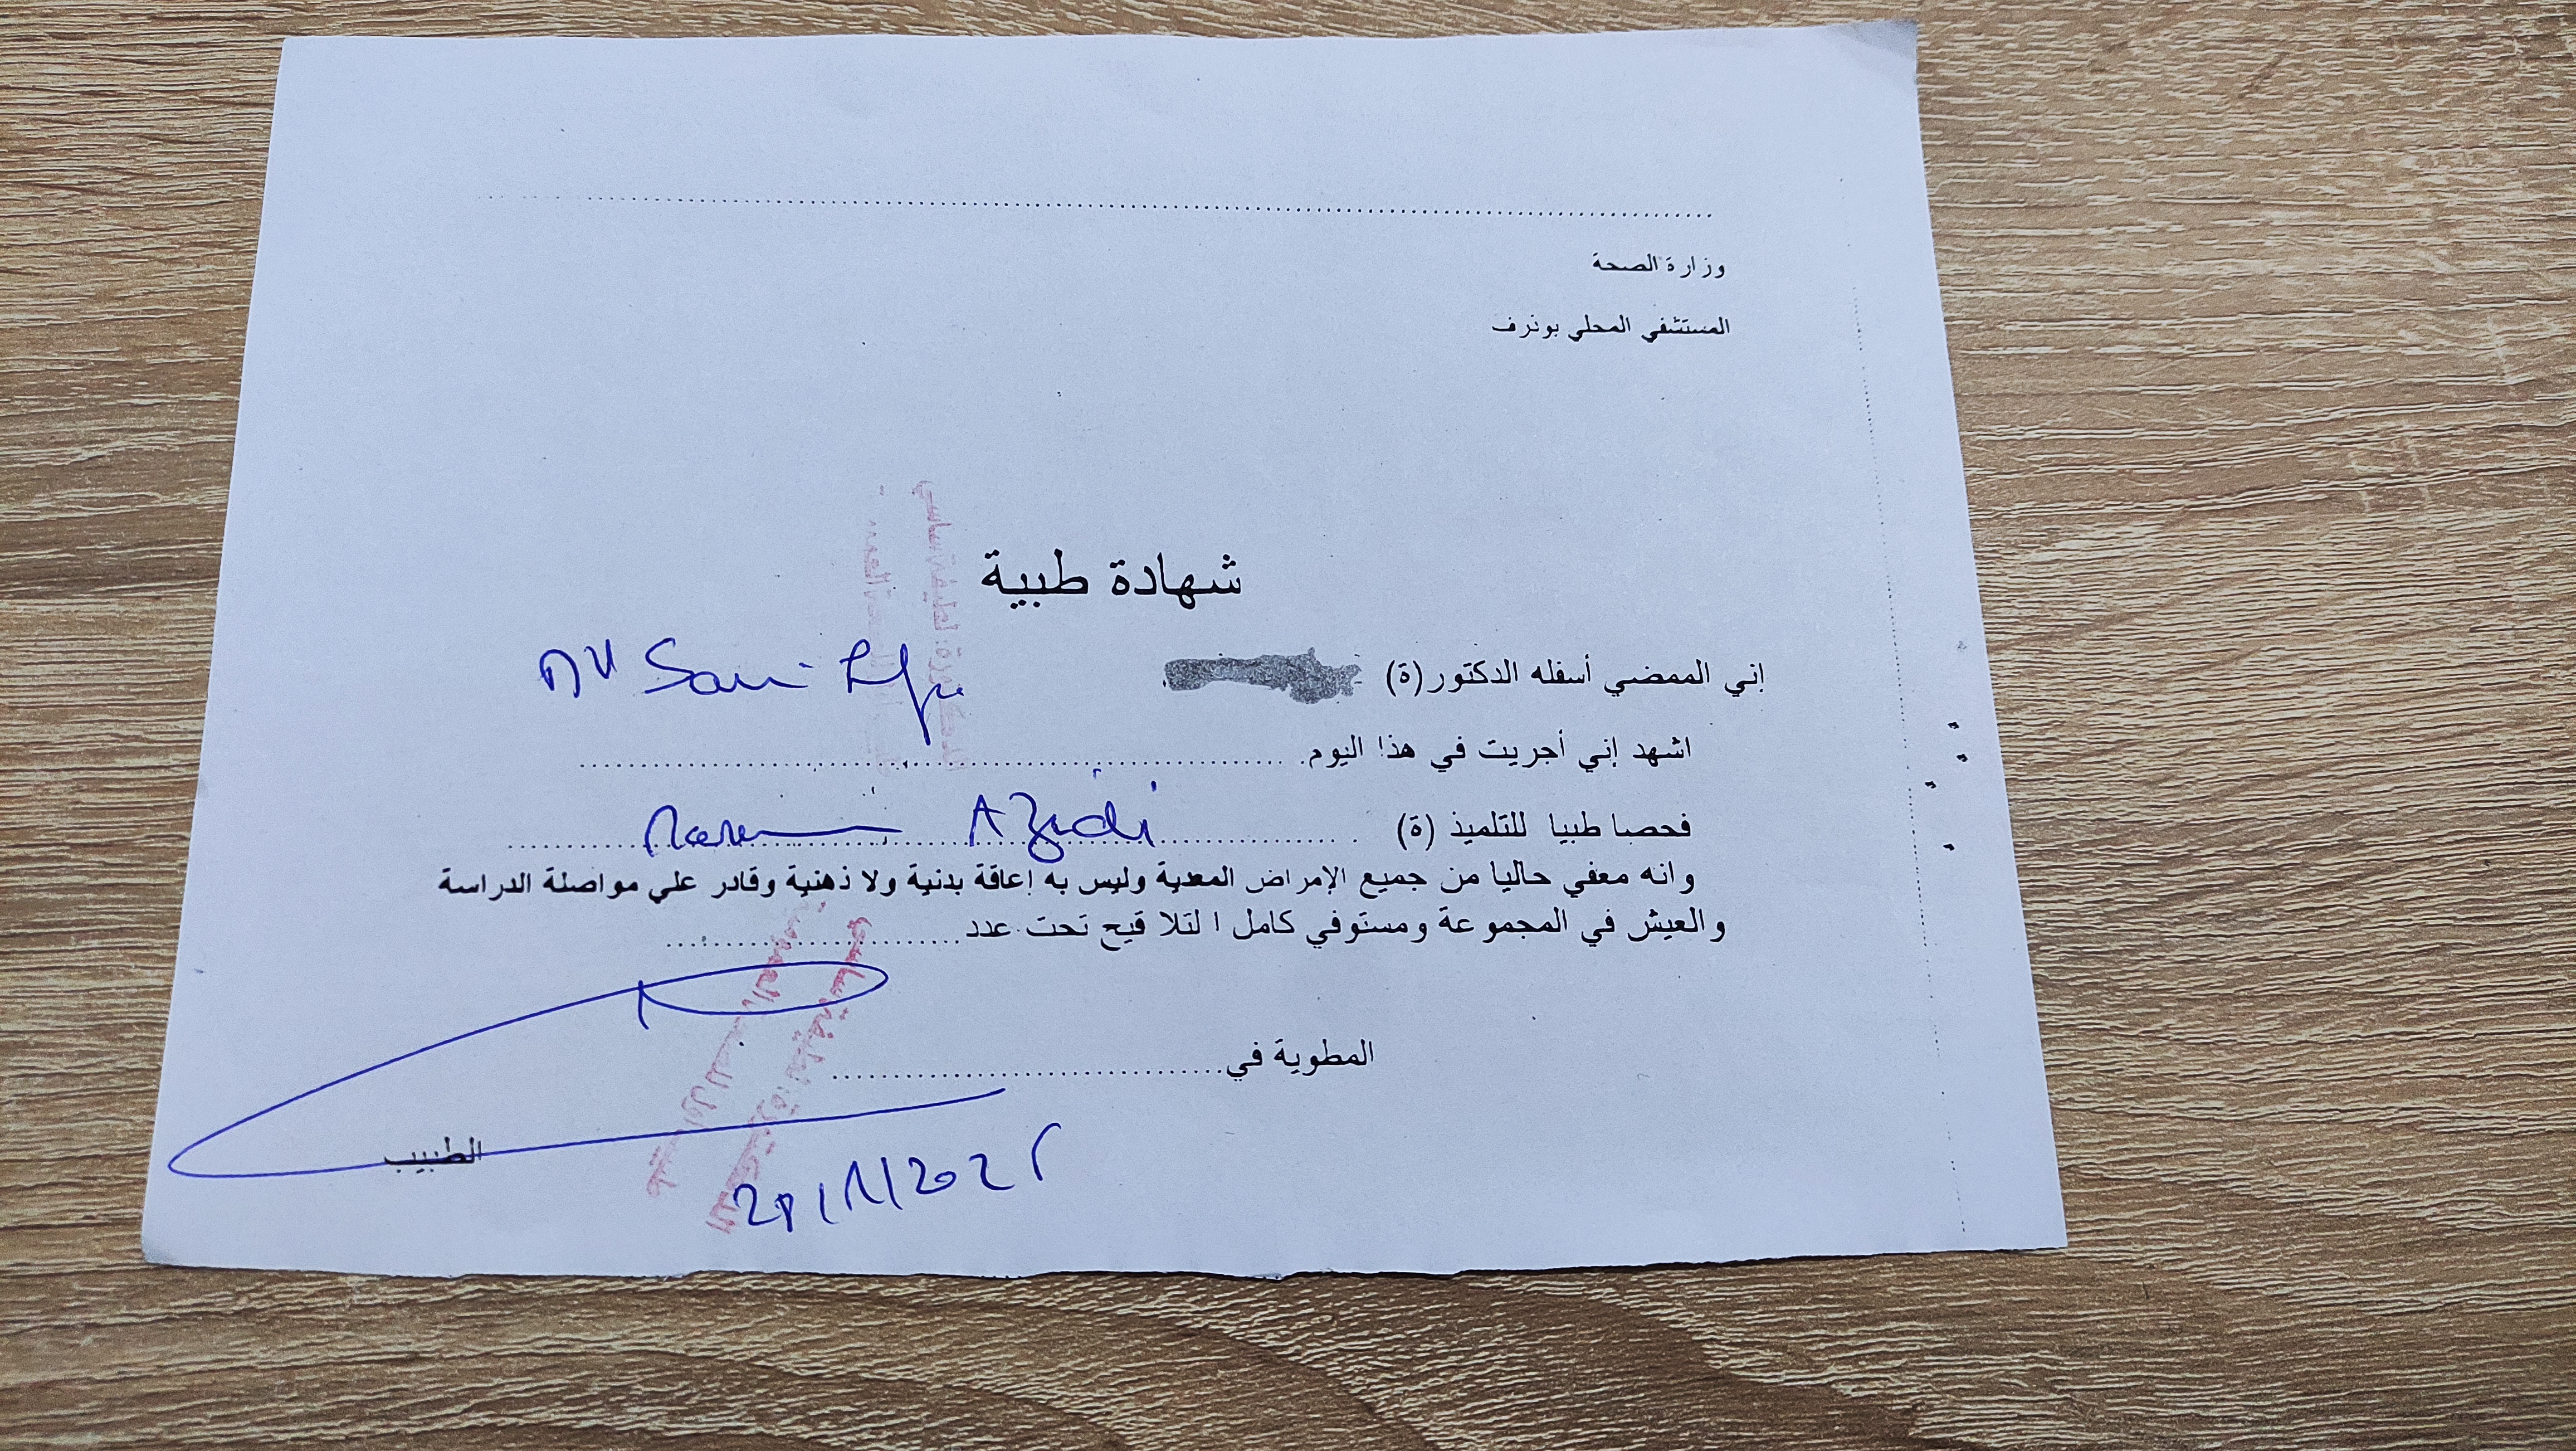 وزارة الصحة
المستشفي المحلي بوثرف
شهادة طبية
إني الممضي أسفله الدكتور (ة)
اشهد إني أجريت في هذا اليوم
فحصا طبيا للتلميذ (ة) Azidi
وانه معفي حاليا من جميع الإمراض المعدية وليس به إعاقة بدنية ولا ذهنية وقادر علي مواصلة الدراسة
والعيش في المجموعة ومستوفي كامل ا لتلا قيح تحت عدد
المطوية في
الطبيب